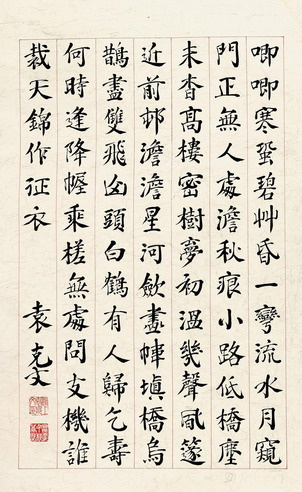 唧唧寒蛩碧艸昏一彎流水月窺
門正無人處澹秋痕小路低橋塵
未杳高樓密樹夢初溫幾聲風篴
近前邨澹澹星河歛畫幃填橋烏
鵲盡雙飛頭白鶴有人歸乞壽
何時逢降幄乘槎無處問支機誰
裁天錦作征衣
袁克文